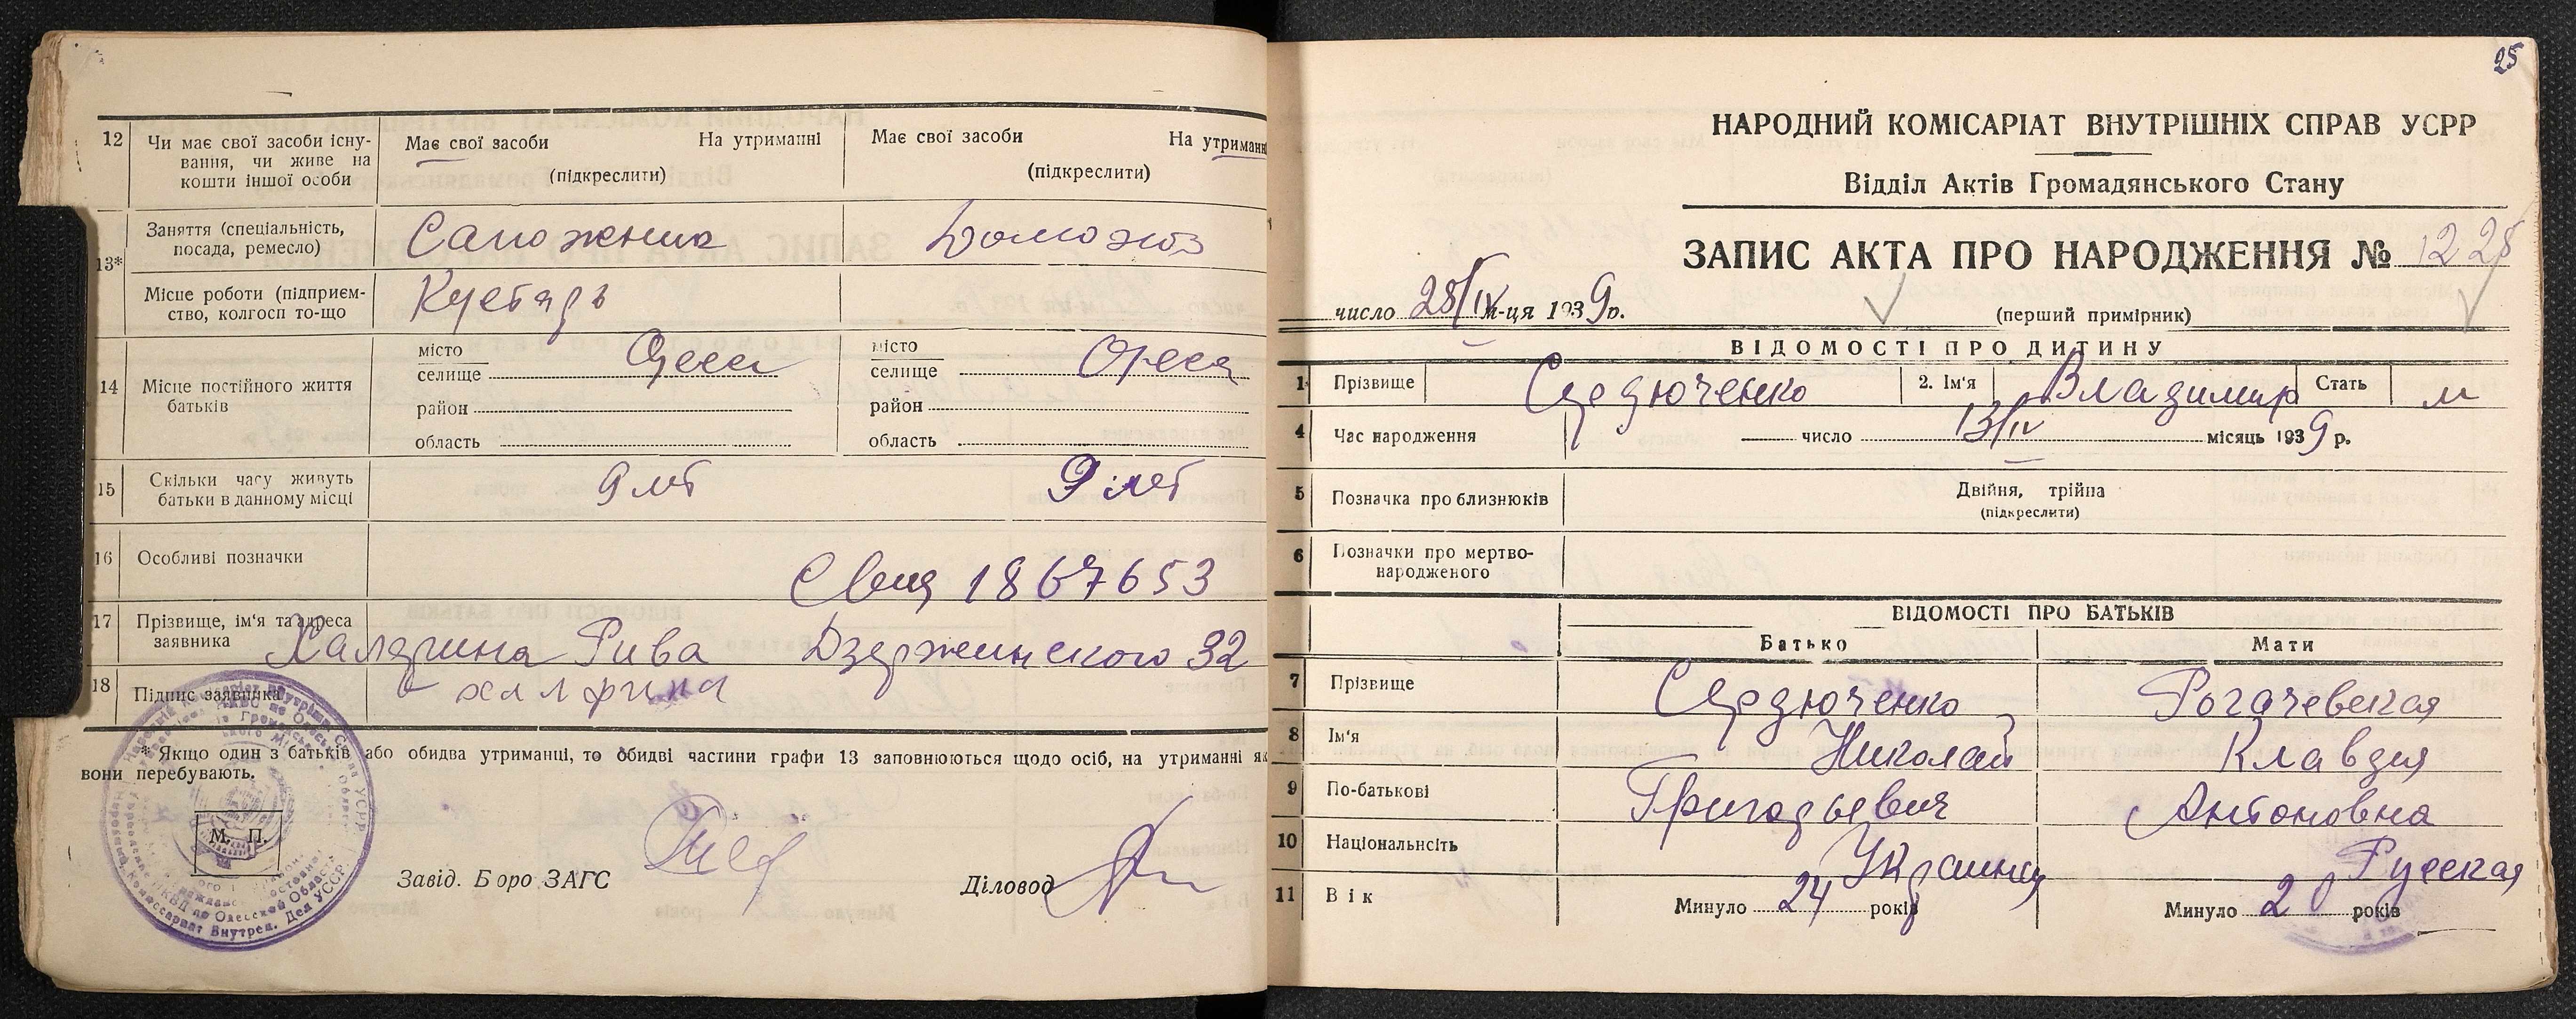 12 Чи має свої засоби існування, чи живе на кошти іншої особи
Має свої засоби На утриманні
(підкреслити)
Має свої засоби На утриманн
(підкреслити)
13*
Заняття (спеціальність, посада, ремесло) Сапожник Домохоз
Місце роботи (підприємство, колгосп то-що Кустарь
14 Місце постійного життя батьків
місто Одесса місто Одесса
селище селище
район район
область область
15 Скільки часу живуть батьки в данному місці 9 лет 9 лет
16 Особливі позначки
1867653
17 Прізвище, ім'я та адреса заявника Рива Дзержинского 32
18 Підпис заявника
* Якщо один з батьків або обидва утриманці, то обидві частини графи 13 заповнюються щодо осіб, на утриманні як
вони перебувають.
М. П.
Завід. Бюро ЗАГС
Діловод
25
НАРОДНИЙ КОМІСАРІАТ ВНУТРІШНІХ СПРАВ УСРР
Відділ Актів Громадянського Стану
ЗАПИС АКТА ПРО НАРОДЖЕННЯ № 1228
число 28/IV м-ця 1939 р.
(перший примірник)
ВІДОМОСТІ ПРО ДИТИНУ
1 Прізвище Сердюченко 2. Ім'я Владимир Стать м
4 Час народження число 13/IV місяць 1939 р.
5 Позначка про близнюків Двійня, трійна
(підкреслити)
6 Позначки про мертвонародженого
ВІДОМОСТІ ПРО БАТЬКІВ
Батько Мати
7 Прізвище Сердюченко Рогачевская
8 Ім'я Николай Клавдия
9 По-батькові Григорьевич Антоновна
10 Національність Украинец Русская
11 Вік Минуло 24 років Минуло 20 років